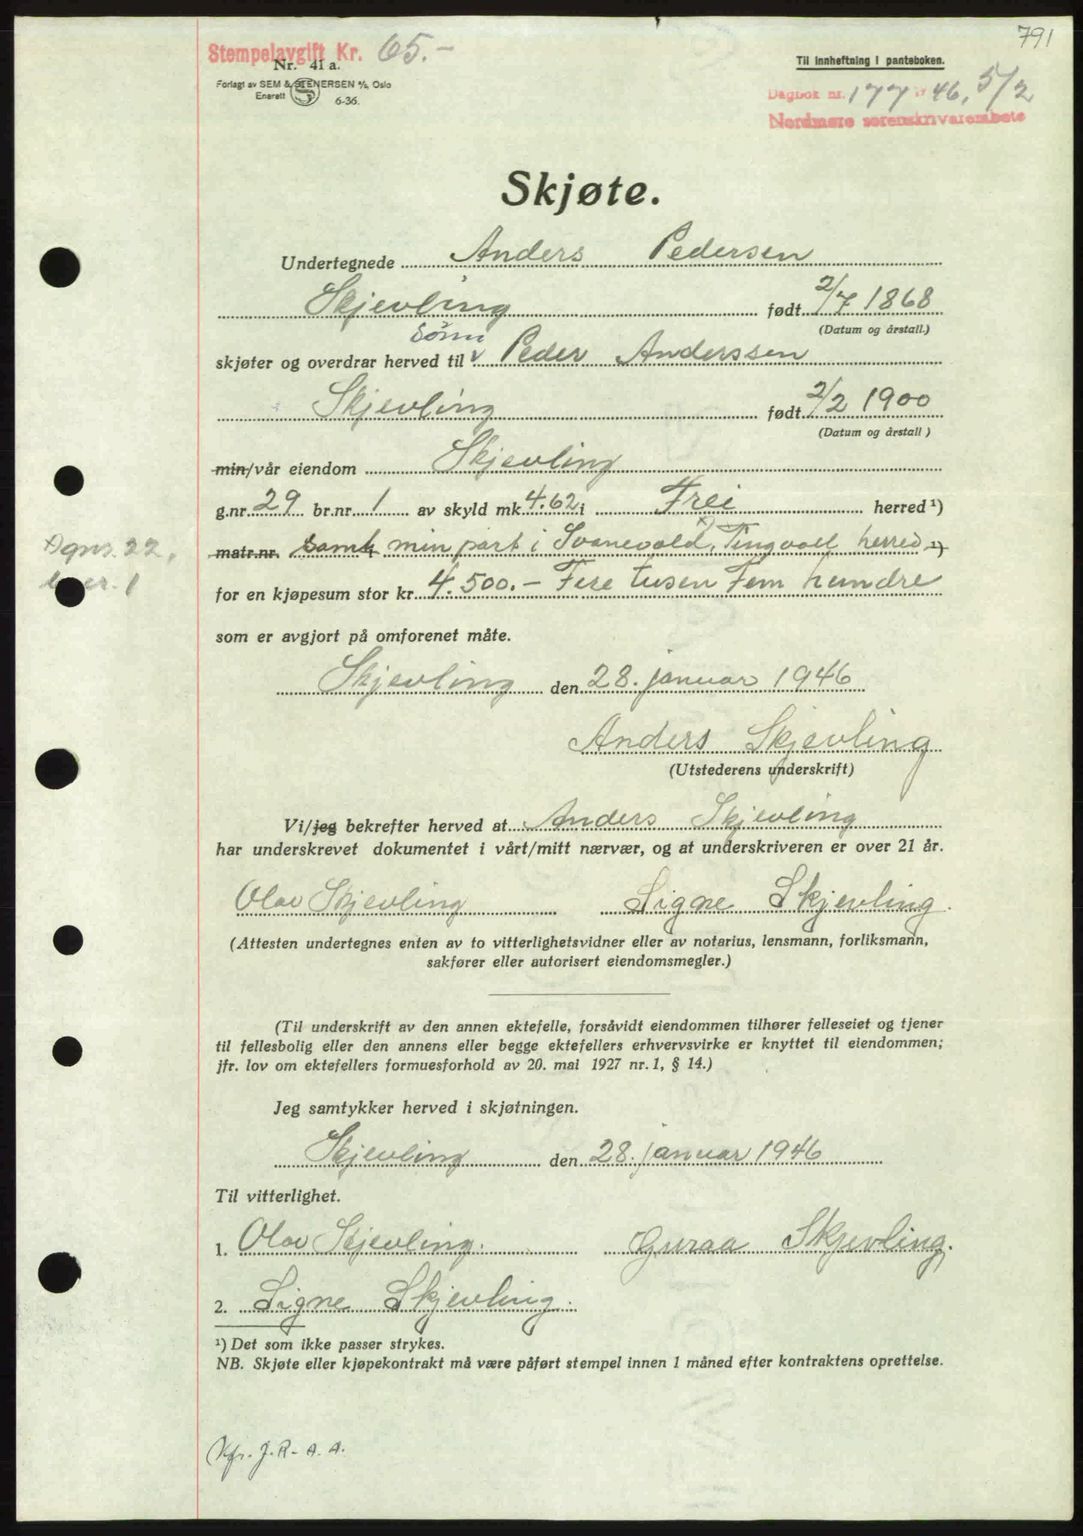 791
Stempelavgift Kr. 65.-
Nr. 41 a.
Forlagt av SEM & STENERSEN A/S, Oslo
Enerett 6-36.
Til innheftning i panteboken.
Dagbok nr. 177 1946, 5/2
Nordmøre sorenskriverembete
Skjøte.
Undertegnede Anders Pedersen
Skjevling født 2/7 1868
(Datum og årstall.)
sønn
skjøter og overdrar herved til v Peder Anderssen
Skjevling født 2/2 1900
(Datum og årstall)
min/vår eiendom Skjevling
g.nr. 29 br.nr. 1 av skyld mk. 4.62 i Frei herred ¹)
matr.nr. samt min part i Svanevold, x) Tingvoll herred ¹)
x) gnr. 22, br. nr. 1
for en kjøpesum stor kr. 4.500.- Fire tusen Fem hundre
som er avgjort på omforenet måte.
Skjevling den 28. januar 1946
Anders Skjevling
(Utstederens underskrift)
Vi/jeg bekrefter herved at Anders Skjevling
har underskrevet dokumentet i vårt/mitt nærvær, og at underskriveren er over 21 år.
Olav Skjevling Signe Skjevling.
(Attesten undertegnes enten av to vitterlighetsvidner eller av notarius, lensmann, forliksmann,
sakfører eller autorisert eiendomsmegler.)
(Til underskrift av den annen ektefelle, forsåvidt eiendommen tilhører felleseiet og tjener
til fellesbolig eller den annens eller begge ektefellers erhvervsvirke er knyttet til eiendommen;
jfr. lov om ektefellers formuesforhold av 20. mai 1927 nr. 1, § 14.)
Jeg samtykker herved i skjøtningen.
Skjevling den 28. januar 1946
Til vitterlighet.
1. Olav Skjevling. Guraa Skjevling.
2. Signe Skjevling.
¹) Det som ikke passer strykes.
NB. Skjøte eller kjøpekontrakt må være påført stempel innen 1 måned efter kontraktens oprettelse.